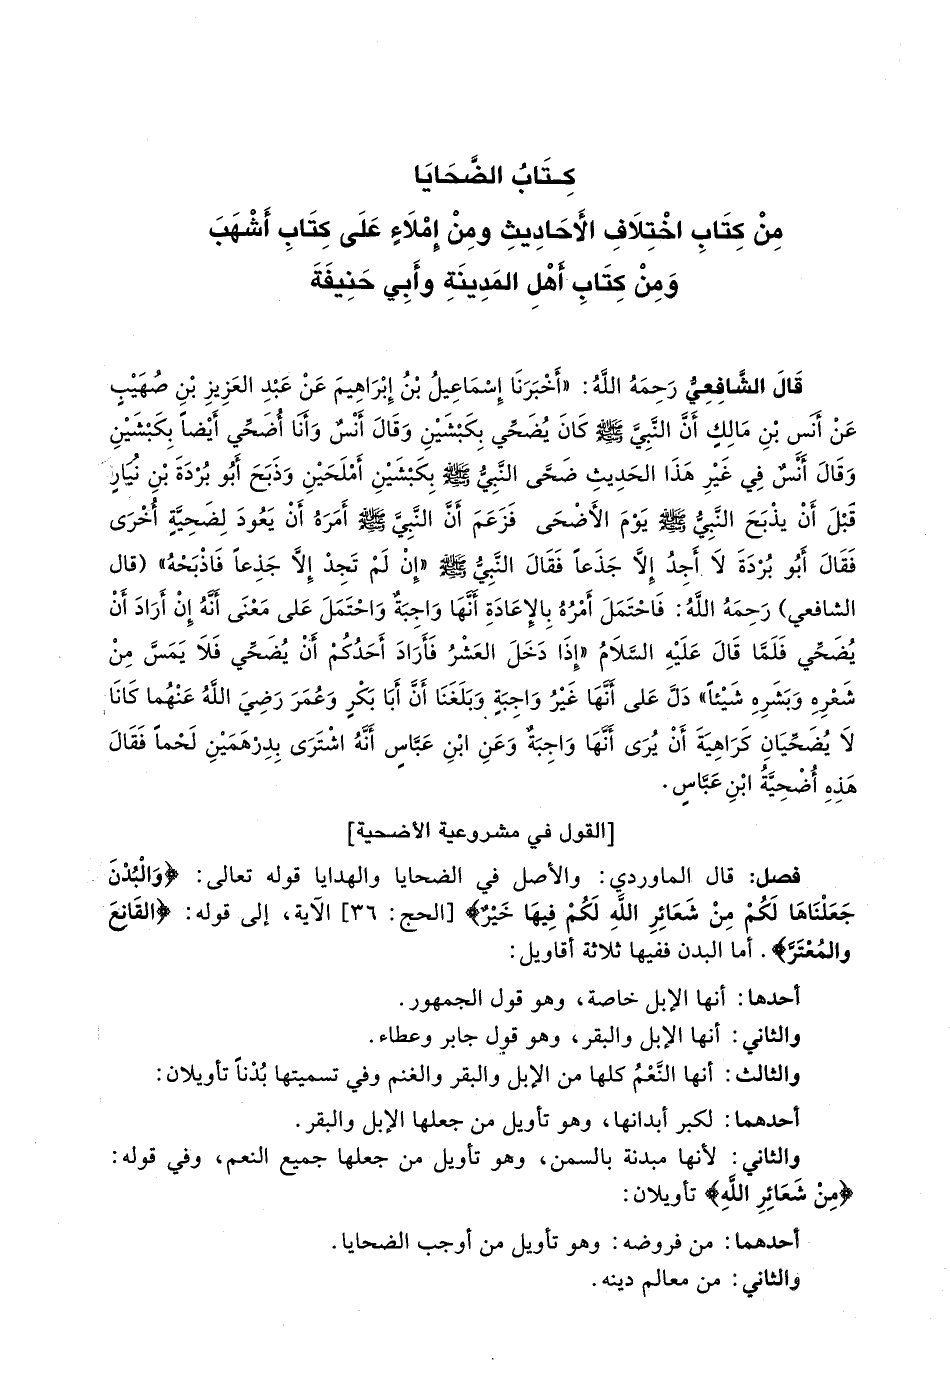 كِـتَابُ الضَّحَايَا
مِنْ كِتَابِ اخْتِلَافِ الْأَحَادِيثِ ومِنْ إِمْلَاءٍ عَلَى كِتَابِ أَشْهَبَ
وَمِنْ كِتَابِ أَهْلِ المَدِينَةِ وأَبِي حَنِيفَةَ
قَالَ الشَّافِعِيُّ رَحِمَهُ اللَّهُ: «أَخْبَرَنَا إِسْمَاعِيلُ بْنُ إِبْرَاهِيمَ عَنْ عَبْدِ العَزِيزِ بْنِ صُهَيْبٍ
عَنْ أَنَسِ بْنِ مَالِكٍ أَنَّ النَّبِيَّ ﷺ كَانَ يُضَحِّي بِكَبْشَيْنِ وَقَالَ أَنَسٌ وَأَنَا أُضَحِّي أَيْضاً بِكَبْشَيْنِ
وَقَالَ أَنَسٌ فِي غَيْرِ هَذَا الحَدِيثِ ضَحَّى النَّبِيُّ ﷺ بِكَبْشَيْنِ أَمْلَحَيْنِ وَذَبَحَ أَبُو بُرْدَةَ بْنِ نُيَارٍ
قَبْلَ أَنْ يذْبَحَ النَّبِيُّ ﷺ يَوْمَ الأَضْحَى فَزَعَمَ أَنَّ النَّبِيَّ ﷺ أَمَرَهُ أَنْ يَعُودَ لِضَحِيَّةٍ أُخْرَى
فَقَالَ أَبُو بُرْدَةَ لَا أَجِدُ إِلَّا جَذَعاً فَقَالَ النَّبِيُّ ﷺ «إِنْ لَمْ تَجِدْ إِلَّا جَذعاً فَاذْبَحْهُ» (قال
الشافعي) رَحِمَهُ اللَّهُ: فَاحْتَمَلَ أَمْرُهُ بِالإِعَادَةِ أَنَّهَا وَاجِبَةٌ وَاحْتَمَلَ عَلى مَعْنَى أَنَّهُ إِنْ أَرَادَ أَنْ
يُضَحِّي فَلَمَّا قَالَ عَلَيْهِ السَّلَامُ «إِذَا دَخَلَ العَشْرُ فَأَرَادَ أَحَدُكُمْ أَنْ يُضَحِّي فَلَا يَمَسَّ مِنْ
شَعْرِهِ وَبَشَرِهِ شَيْئاً» دَلَّ عَلى أَنَّهَا غَيْرُ وَاجِبَةٍ وَبَلَغَنَا أَنَّ أَبَا بَكْرٍ وَعُمَرَ رَضِيَ اللَّهُ عَنْهُما كَانَا
لَا يُضَحِّيَانِ كَرَاهِيَةَ أَنْ يُرَى أَنَّهَا وَاجِبَةٌ وَعَنِ ابْنِ عَبَّاسٍ أَنَّهُ اشْتَرَى بِدِرْهَمَيْنِ لَحْماً فَقَالَ
هَذِهِ أُضْحِيَّةُ ابْنِ عَبَّاسٍ.
[القول في مشروعية الأضحية]
فصل: قال الماوردي: والأصل في الضحايا والهدايا قوله تعالى: ﴿وَالْبُدْنَ
جَعَلْنَاهَا لَكُمْ مِنْ شَعَائِرِ اللَّهِ لَكُمْ فِيهَا خَيْرٌ﴾ [الحج: ٣٦] الآية، إلى قوله: ﴿القَانِعَ
والمُعْتَرَّ﴾. أما البدن ففيها ثلاثة أقاويل:
أحدها: أنها الإبل خاصة، وهو قول الجمهور.
والثاني: أنها الإبل والبقر، وهو قول جابر وعطاء.
والثالث: أنها النَّعْمُ كلها من الإبل والبقر والغنم وفي تسميتها بُدْناً تأويلان:
أحدهما: لكبر أبدانها، وهو تأويل من جعلها الإبل والبقر.
والثاني: لأنها مبدنة بالسمن، وهو تأويل من جعلها جميع النعم، وفي قوله:
﴿مِنْ شَعَائِرِ اللَّهِ﴾ تأويلان:
أحدهما: من فروضه: وهو تأويل من أوجب الضحايا.
والثاني: من معالم دينه.